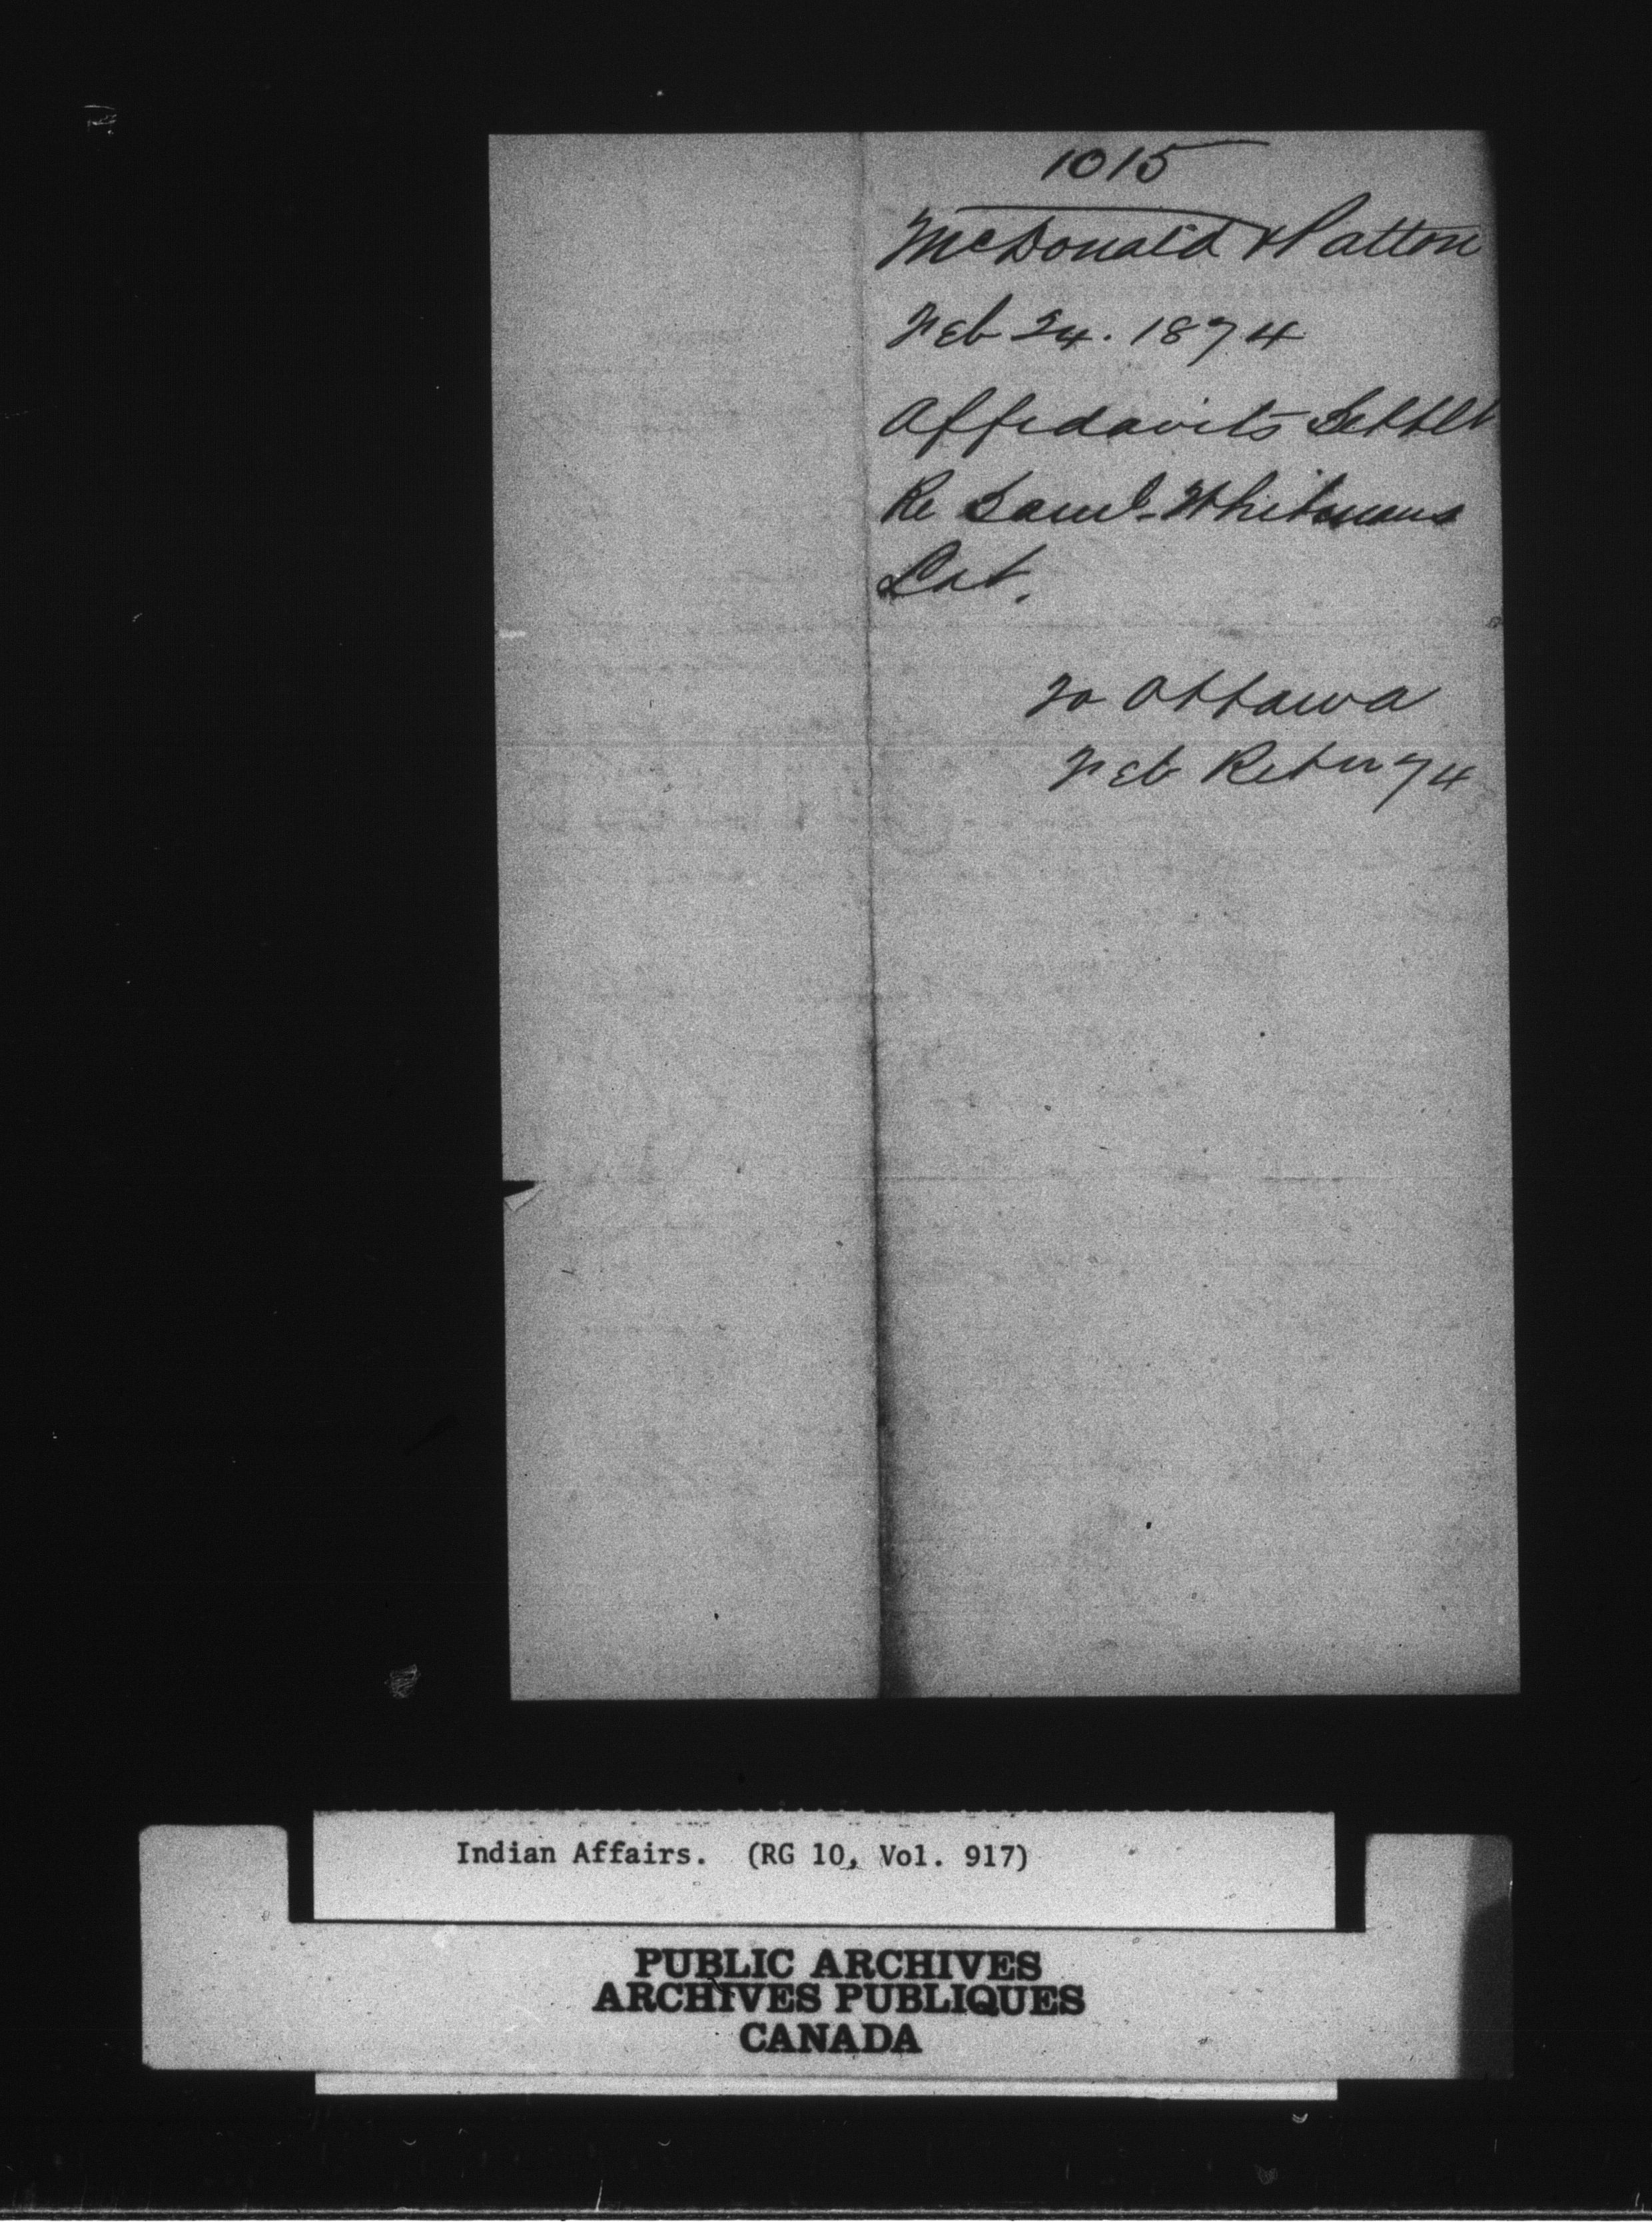 1015
McDonald & Patton
Feb 24. 1874
Affidavits Settlt
Re Saml. Whitmans
Lot.
To Ottawa
Feb Retn 74
Indian Affairs. (RG 10, Vol. 917)
PUBLIC ARCHIVES
ARCHIVES PUBLIQUES
CANADA